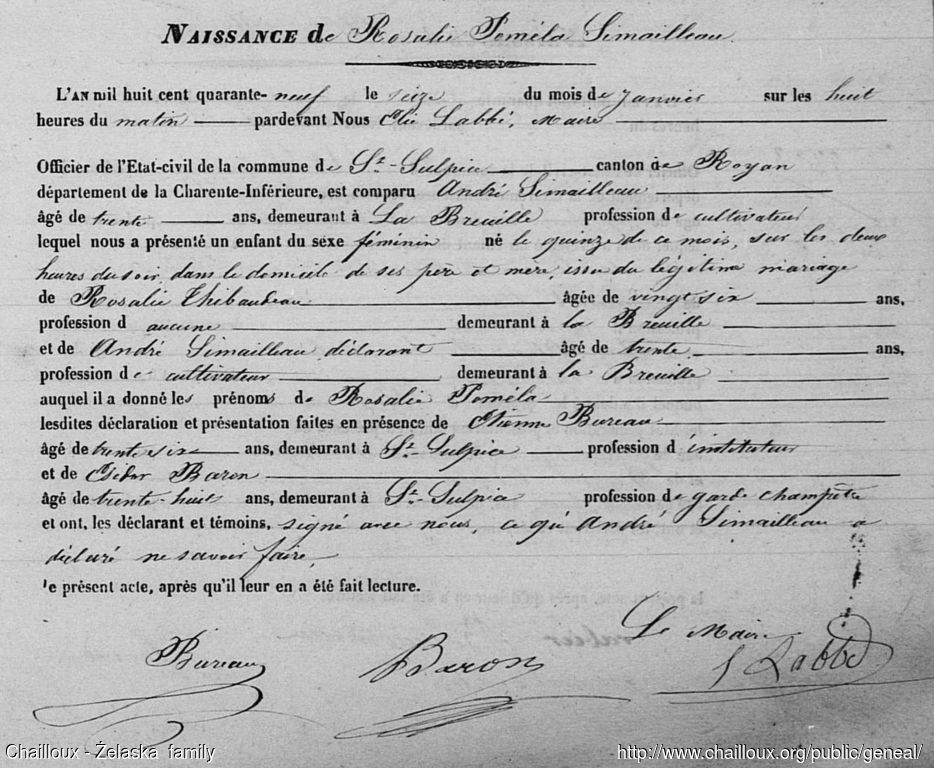 NAISSANCE de Rosalie Poméla Simailleau
L'AN mil huit cent quarante-neuf le seize du mois de janvier sur les huit
heures du matin pardevant Nous Elie Labbé, Maire
Officier de l'Etat-civil de la commune de St-Sulpice canton de Royan
département de la Charente-Inférieure, est comparu André Simailleau
âgé de trente ans, demeurant à La Breuille profession de cultivateur
lequel nous a présenté un enfant du sexe féminin né le quinze de ce mois, sur les deux
heures du soir, dans le domicile de ses père et mère, issu du légitime mariage
de Rosalie Thibaudeau âgée de vingt six ans,
profession d aucune demeurant à la Breuille
et de André Simailleau déclarant âgé de trente ans,
profession de cultivateur demeurant à la Breuille
auquel il a donné les prénoms de Rosalie Poméla
lesdites déclaration et présentation faites en présence de Etienne Bureau
âgé de trente six ans, demeurant à St-Sulpice profession d'instituteur
et de Baron
âgé de trente-huit ans, demeurant à St-Sulpice profession de garde champêtre
et ont, les déclarant et témoins, signé avec nous, ce qu'André Simailleau a
déclaré ne savoir faire,
le présent acte, après qu'il leur en a été fait lecture.
Le Maire
Bureau Baron Labbé
Chailloux - Żelaska family http://www.chailloux.org/public/geneal/